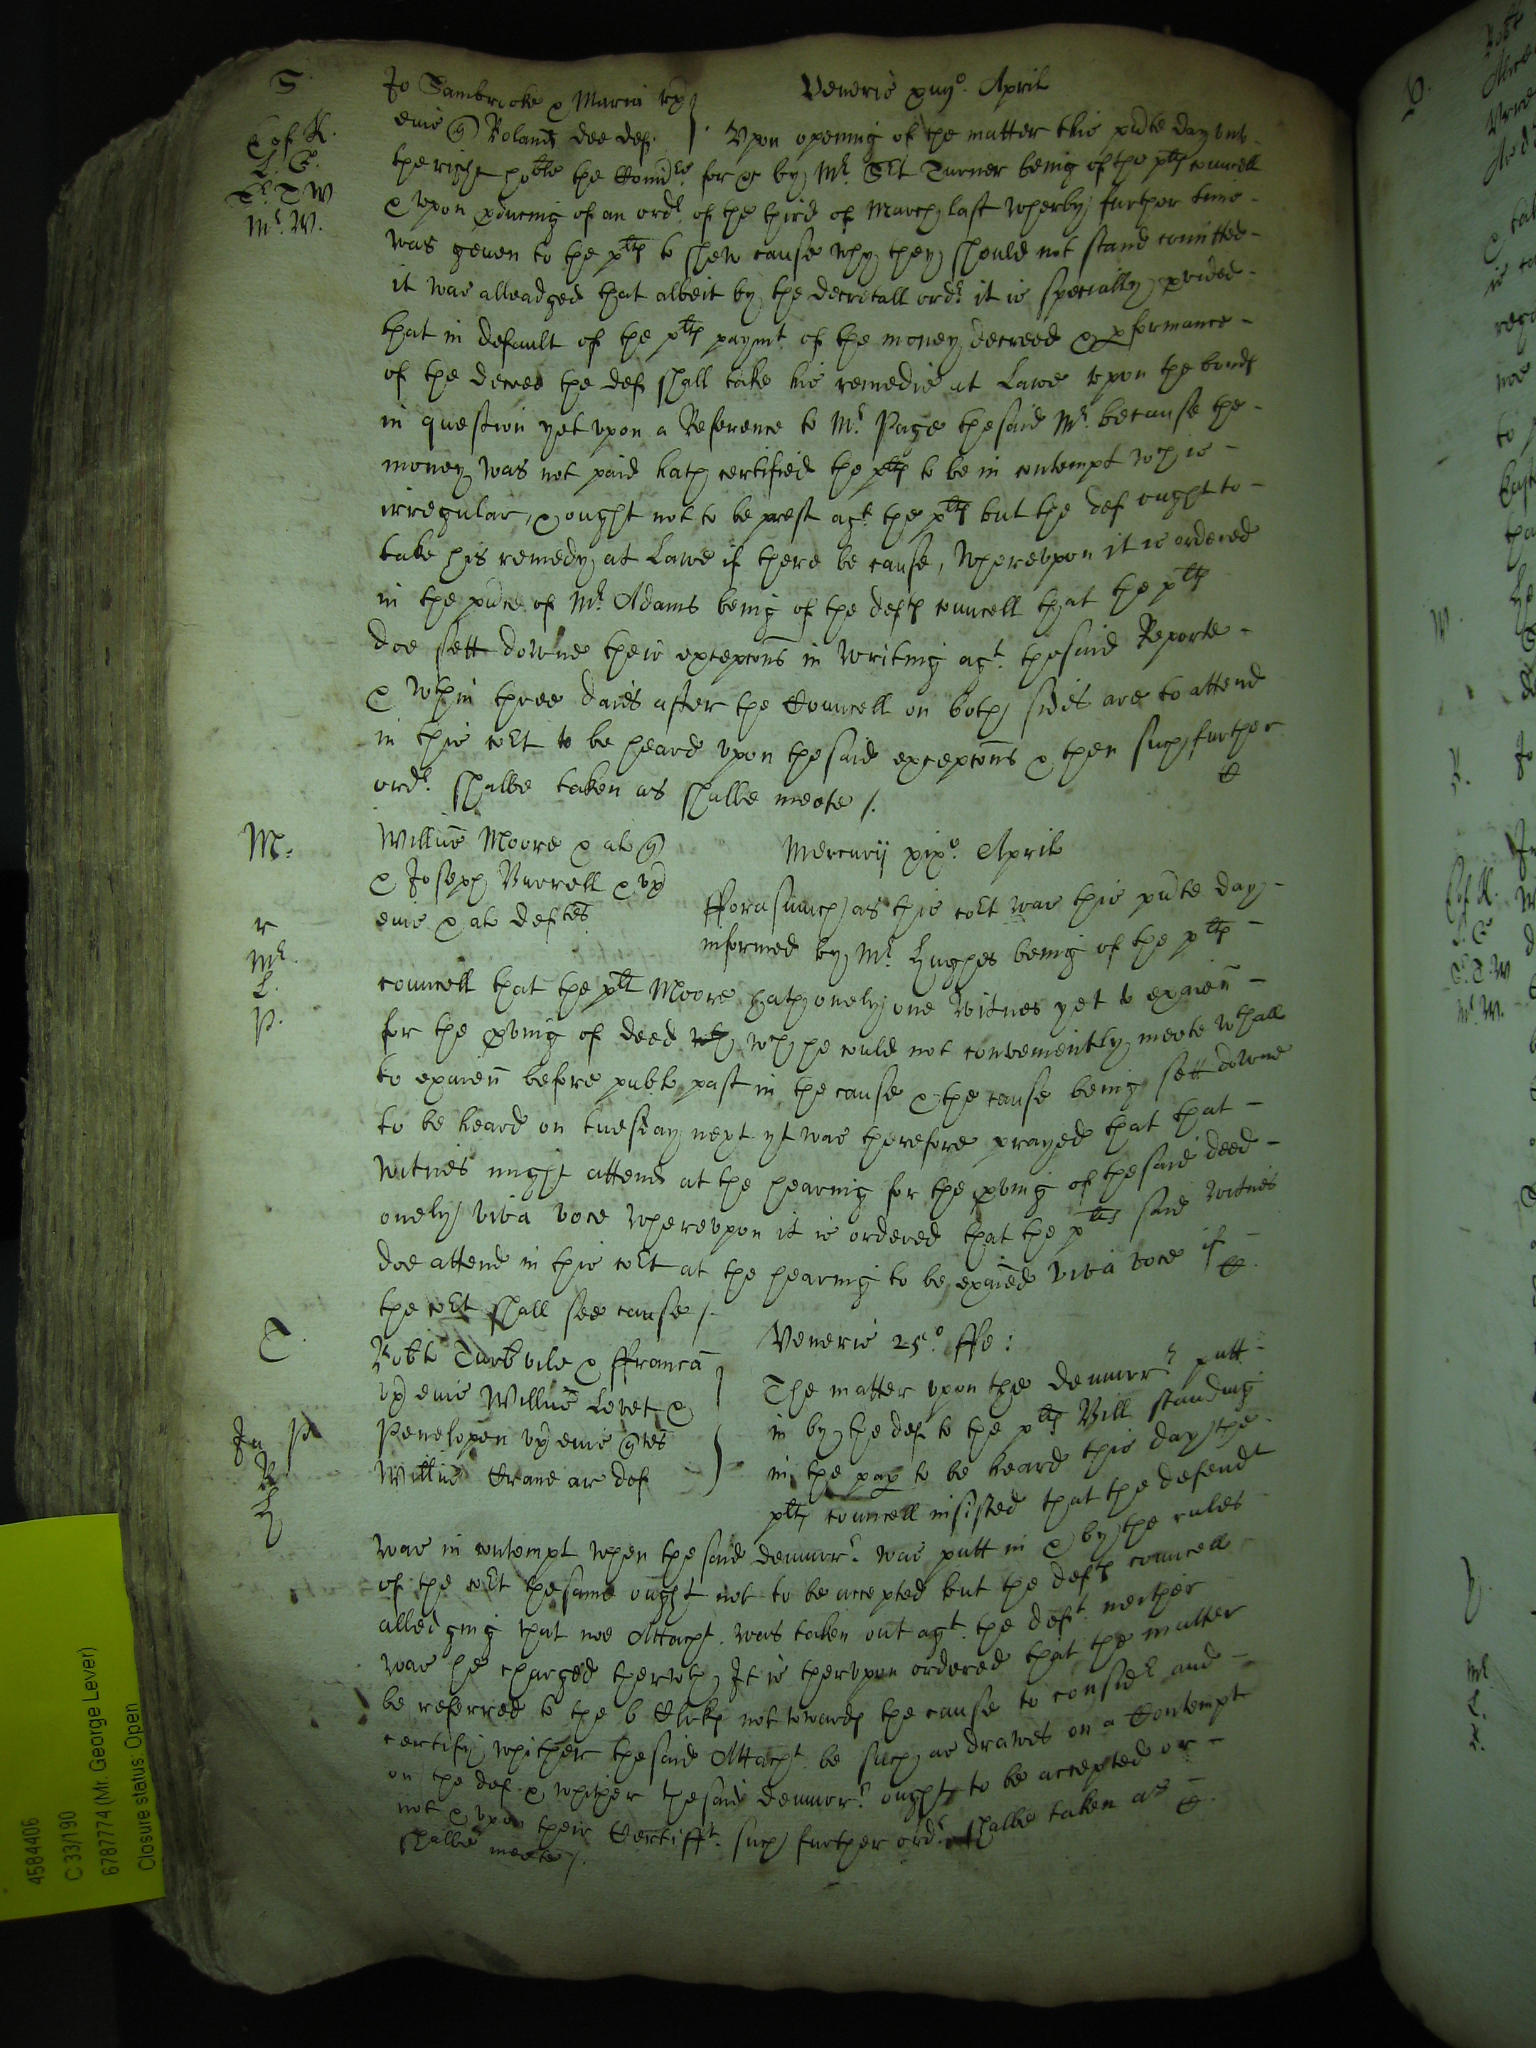 S
Jo Sambrooke & Maria ux
Veneris xiiijo. April
eius q Roland Lee def.
Vpon opening of the matter this pnte day vnto
E of K.
L. C.
the right hoble the Comrs. for & by Mr. Sct Turner being of the plts councell
Mr. W.
& vpon pducing of an ordr. of the third of March last wherby further time
was geuen to the plts to shew cause why they should not stand comitted
it was alleadged that albeit by the decretall ordr. it is specially pvided
that in default of the plts paymt. of the money decreed & pformance
of the decree the def shall take his remedie at Lawe vpon the bonds
in question yet vpon a Reference to Mr. Page the said Mr. because the
money was not paid hath certified the plts to be in contempt wch is
irregular, & ought not to be prest agt. the plts but the def ought to
take his remedy at Lawe if there be cause, Wherevpon it is ordered
in the pnce of Mr. Adams being of the defts councell that the plts
doe sett downe their excepcons in writing agt. the said Reporte
& wthin three daies after the Councell on both sides are to attend
in this Cort to be heard vpon the said excepcons & then such further
ordr. shalbe taken as shalbe meete /.
M.
Willm Moore & al q
Mercurij xixo. April
& Joseph Burrell & ux
eius & al deftes
fforasmuch as this Cort was this pnte day
r
informed by Mr. Hughes being of the plts
Mr.
L.
P.
councell that the plt Moore hath onely one witnes yet to examen
for the pving of deed wch he could not conveniently meete wthall
to examen before publc past in the cause & the cause being sett downe
to be heard on tuesday next yt was therefore prayed that that
witnes might attend at the hearing for the pving of the said deed
onely viva voce Wherevpon it is ordered that the plts said witnes
doe attend in this Cort at the hearing to be examed viva voce if
the Cort shall see cause /.
T.
Robt Turbvile & ffranca
Veneris 25o. ffe:
ux eius Willm Levet &
The matter vpon the demurr putt
Penelopen ux eius qtes
in by the def to the plts Bill standing
Willm Crane ar def
in the pap to be heard this day the
plts councell insisted that the defendt
was in contempt when the said demurr. was putt in & by the rules
of the Cort the same ought not to be accepted but the defts councell
alledging that noe Attacht. was taken out agt. the deft. neither
was he charged therwth It is thervpon ordered that the matter
be referred to the 6 Clrks not towards the cause to considr and
certify whither the said Attacht. be such as drawes on a Contempt
on the def & whither the said demurr. ought to be accepted or
not & vpon their Certifft. such further ordr. shalbe taken as
shalbe meete /.
4584406
C 33/190
6787774 (Mr. George Lever)
Closure status: Open